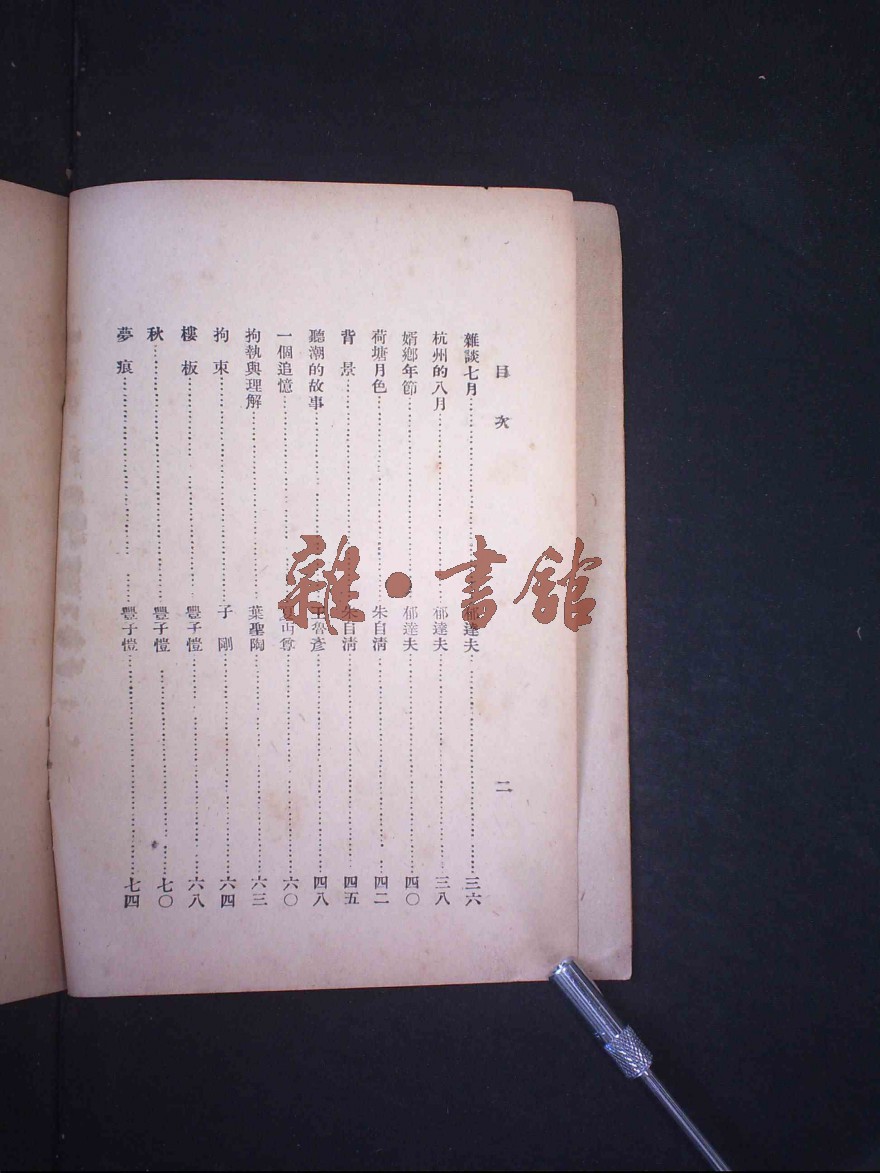 目次 二
雜談七月 郁達夫 三六
杭州的八月 郁達夫 三八
婿鄉年節 郁達夫 四〇
荷塘月色 朱自清 四二
背景 朱自清 四五
聽潮的故事 王魯彥 四八
一個追憶 夏丏尊 六〇
拘執與理解 葉聖陶 六三
拘束 子剛 六四
樓板 豐子愷 六八
秋 豐子愷 七〇
夢痕 豐子愷 七四
雜·書館